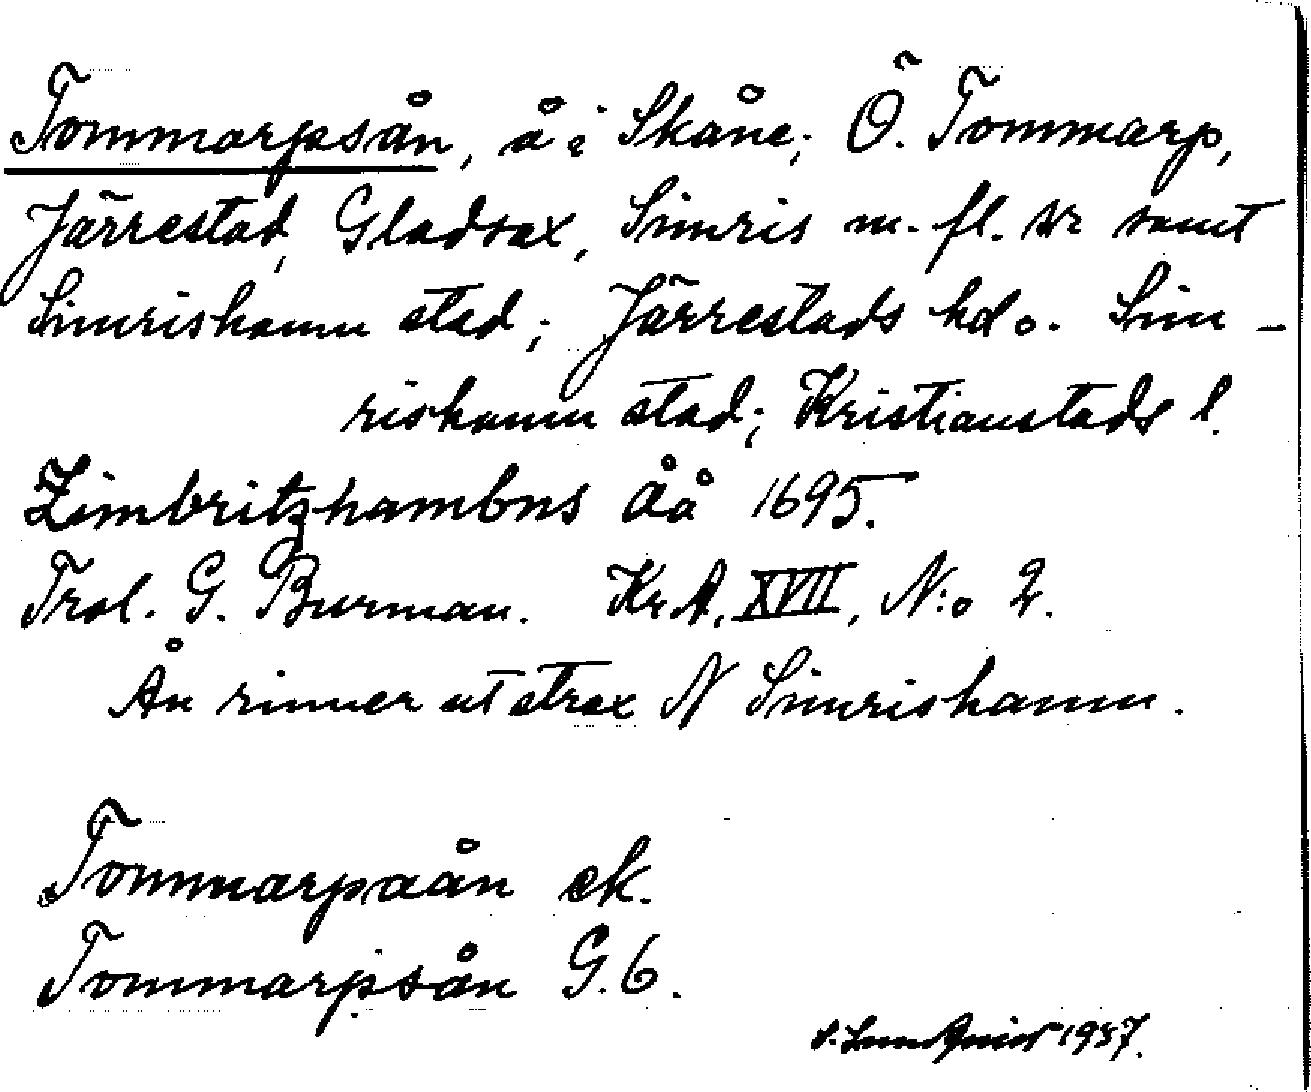 Tommarpsån, å i Skåne; Ö. Tommarp,
Järrestad, Gladsax, Simris m. fl. snr samt
Simrishamn stad; Järrestads hd o. Sim-
rishamn stad; Kristianstads l.
Zimbritzhambns Åå 1695.
Trol. G. Burman. Kr.A. XVII, N:o 2.
Ån rinner ut strax N Simrishamn.
Tommarpaån ek.
Tommarpsån G.6.
S. Lundquist 1937.